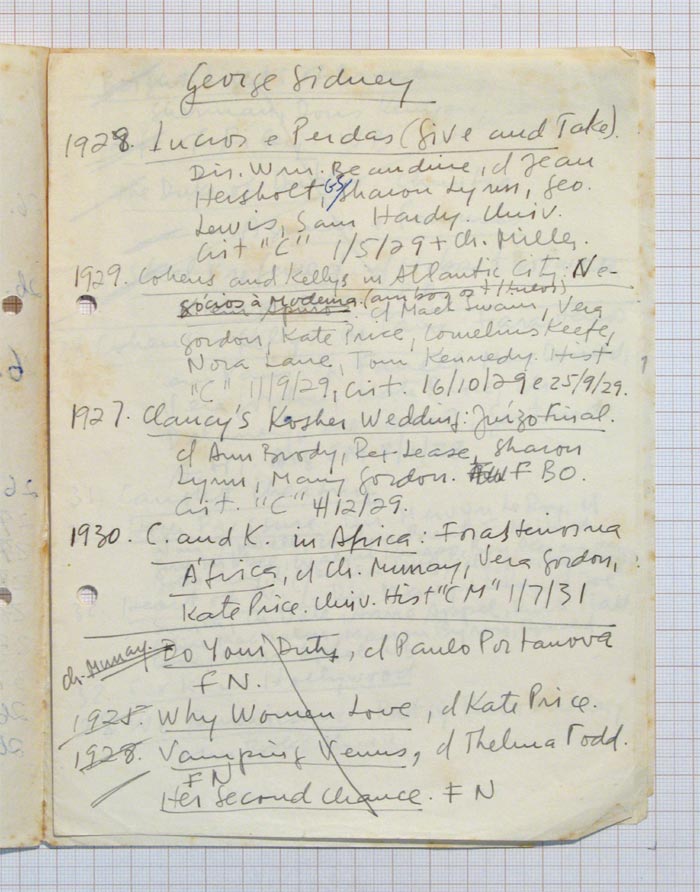 George Sidney
1928. Lucros e Perdas (Give and Take).
Dir. Wm. Beaudine, c/ Jean
Hersholt, GS/ Sharon Lynn, Geo.
Lewis, Sam Hardy. Univ.
Crit "C" 1/5/29 + Ch. Miller.
1929. Cohens and Kellys in Atlantic City: Ne-
gócios à Moderna. (ambos os títulos)
c/ Mack Swain, Vera
Gordon, Kate Price, Cornelius Keefe,
Nora Lane, Tom Kennedy. Hist
"C" 11/9/29, Crit. 16/10/29 e 25/9/29.
1927. Clancy's Kosher Wedding: Juízo Final.
c/ Ann Brody, Rex Lease, Sharon
Lynn, Mary Gordon. FBO.
Crit. "C" 4/12/29.
1930. C. and K. in Africa: Forasteiros na
África, c/ Ch. Murray, Vera Gordon,
Kate Price. Univ. Hist "CM" 1/7/31
Ch. Murray. Do Your Duty, c/ Paulo Portanova
FN.
1925. Why Women Love, c/ Kate Price.
1928. Vamping Venus, c/ Thelma Todd.
FN
Her Second Chance. FN